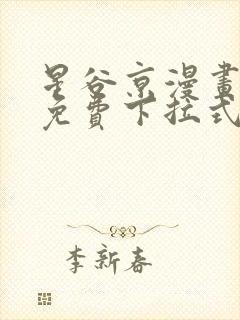 星谷京漫畫
免費下拉式
李新春